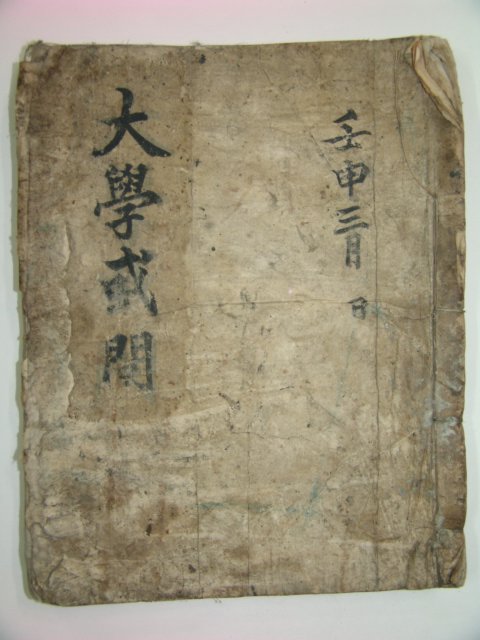 壬申三月 日
大學或問